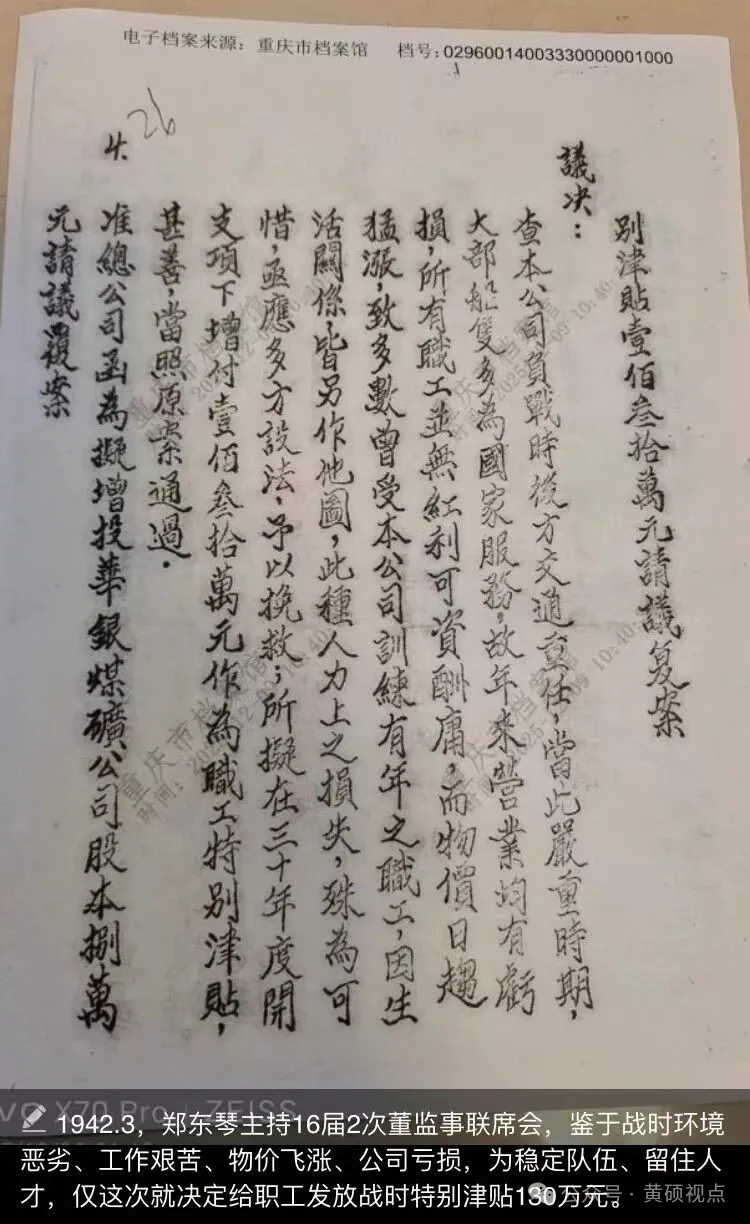 电子档案来源：重庆市档案�　档号：02960014003330000001000
26
別津貼壹佰叁拾萬元請議复案
議决：
查本公司負戰時後方交通重任，當此嚴重時期，
大部船隻多為國家服務，故年來營業均有虧
損，所有職工並無紅利可資酬庸，而物價日趨
猛漲，致多數曾受本公司訓練有年之職工，因生
活關係，皆另作他圖，此種人力上之損失，殊為可
惜，亟應多方設法，予以挽救；所擬在三十年度開
支項下增付壹佰叁拾萬元作為職工特別津貼，
甚善，當照原案通過．
4. 准總公司函為擬增投華銀煤礦公司股本捌萬
元請議覆案
重庆市档案馆
重庆市档案馆
重庆市档案馆
VO X70 Pro | ZEISS
1942.3，郑东琴主持16届2次董监事联席会，鉴于战时环境
恶劣、工作艰苦、物价飞涨、公司亏损，为稳定队伍、留住人
才，仅这次就决定给职工发放战时特别津贴130万元。
公众号・黄硕视点